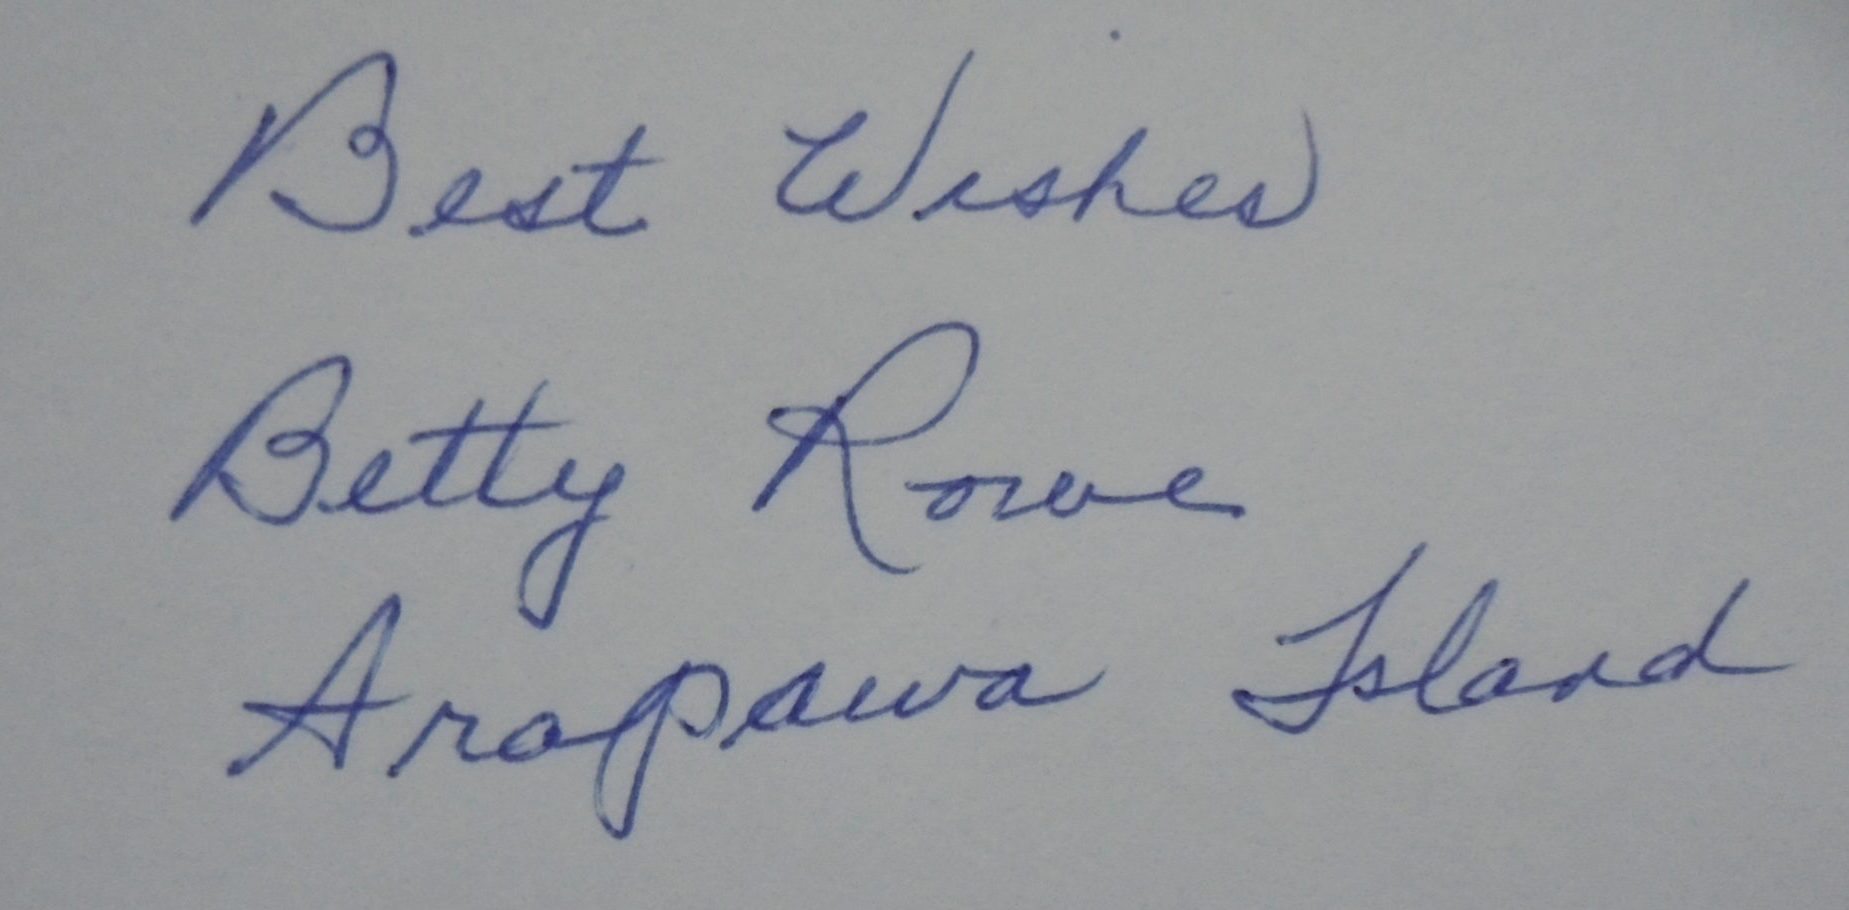 Best Wishes
Betty Rowe
Arapawa Island